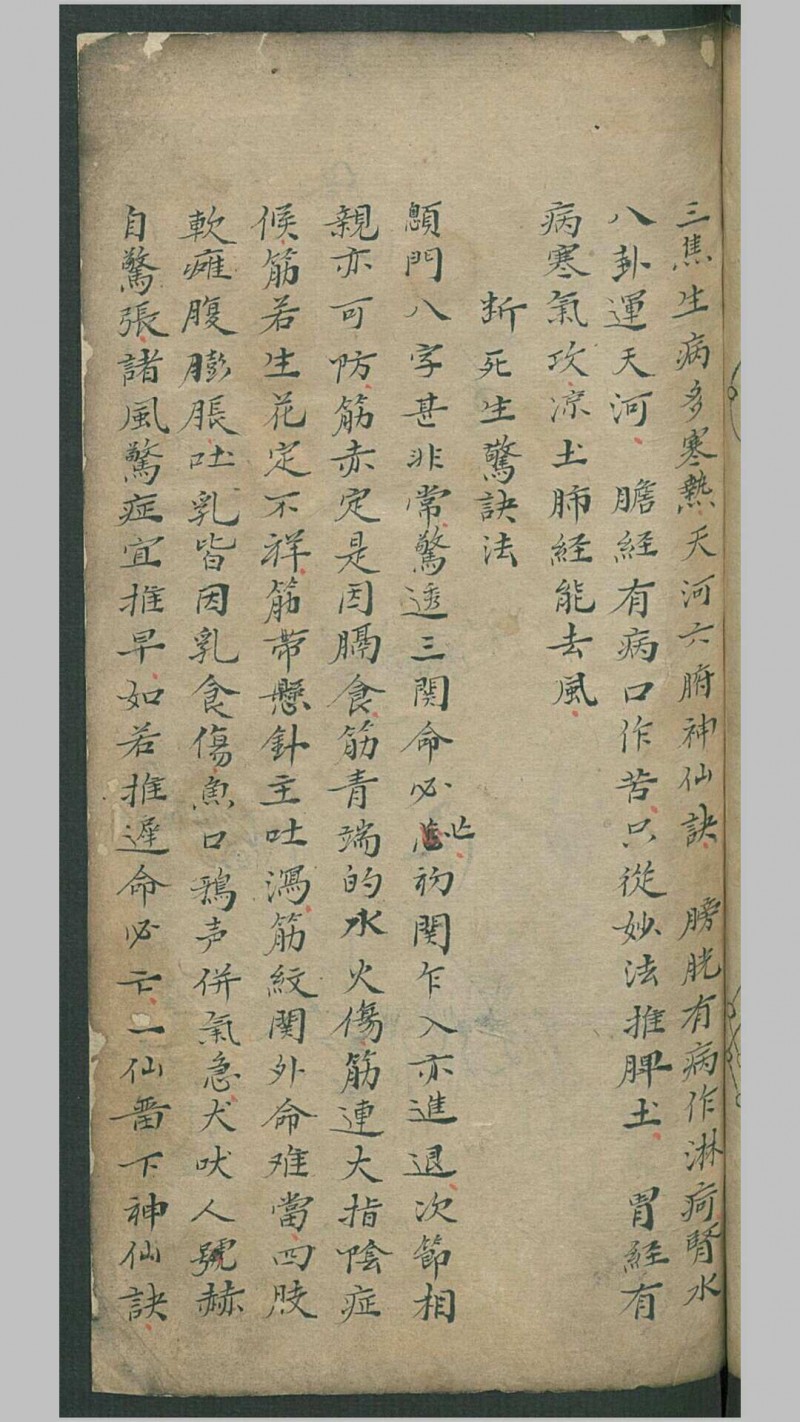 三焦生病多寒熱天河六腑神仙訣 膀胱有病作淋疴腎水
八卦運天河 膽經有病口作苦只從妙法推脾土 胃經有
病寒氣攻凉土肺經能去風
断死生驚訣法
顖門八字甚非常驚透三関命必亡初関乍入亦進退次節相
親亦可防筋赤定是因膈食筋青端的水火傷筋連大指陰症
候筋若生花定不祥筋帶懸針主吐瀉筋紋関外命难當四肢
軟瘫腹膨脹吐乳皆因乳食傷魚口鴉声併氣急犬吠人號赫
自驚張諸風驚症宜推早如若推遲命必亡一仙畱下神仙訣